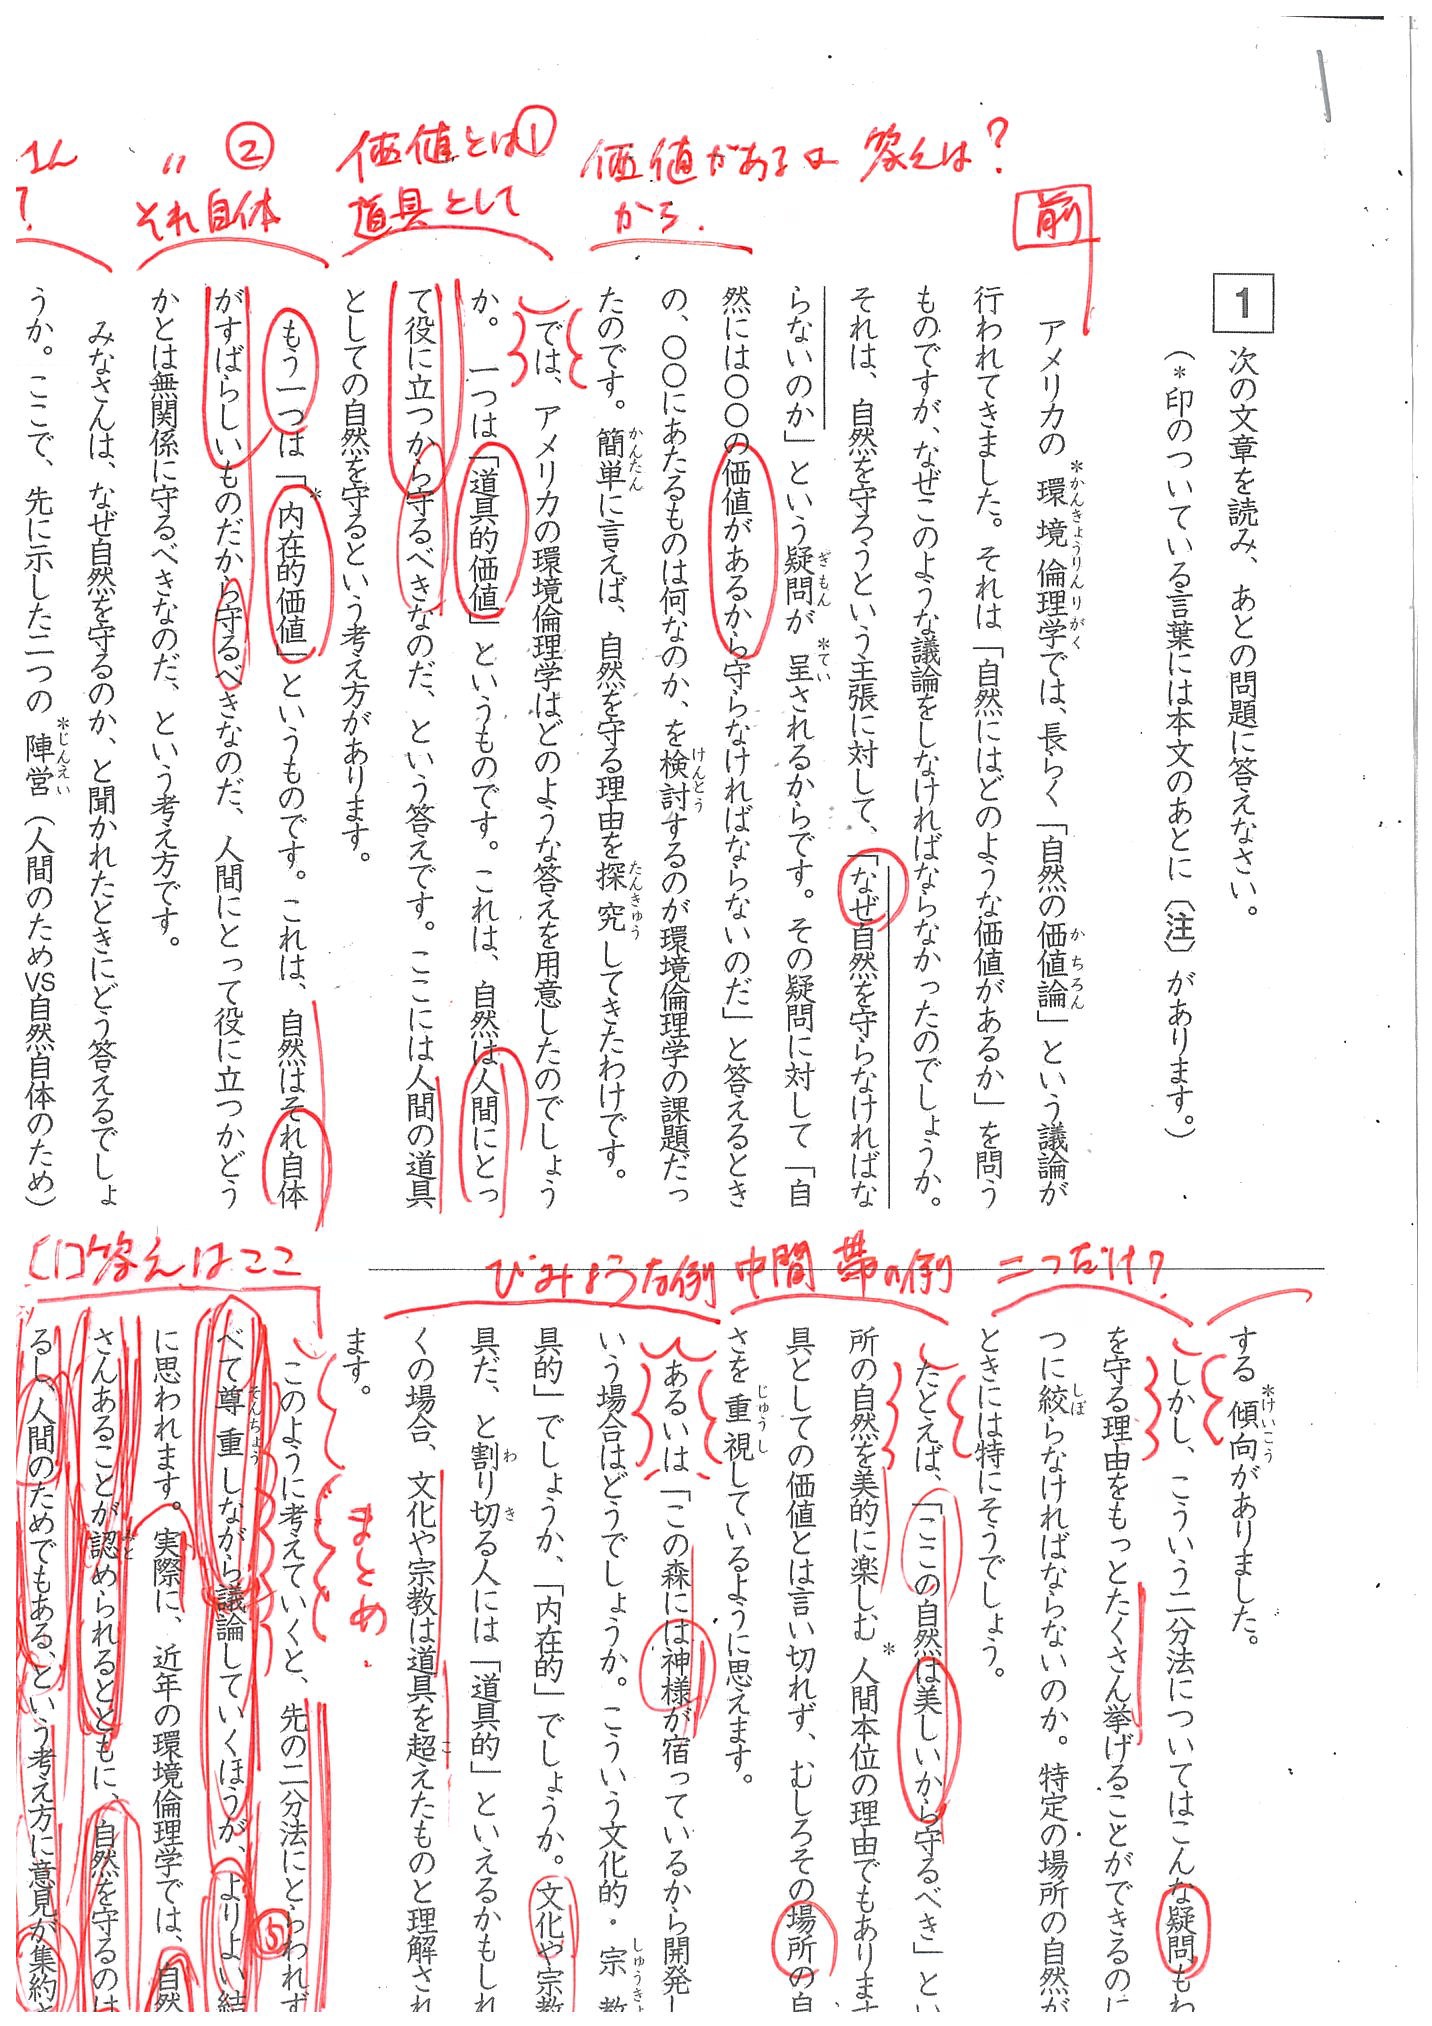 1
次の文章を読み、あとの問題に答えなさい。
(＊印のついている言葉には本文のあとに〔注〕があります。)
前
答えは？
価値がある
から．
価値とは①
道具として
〃 ②
それ自体
？
アメリカの＊環境倫理学では、長らく「自然の価値論」という議論が
行われてきました。それは「自然にはどのような価値があるか」を問う
ものですが、なぜこのような議論をしなければならなかったのでしょうか。
それは、自然を守ろうという主張に対して、「なぜ自然を守らなければな
らないのか」という疑問が＊呈されるからです。その疑問に対して「自
然には〇〇の価値があるから守らなければならないのだ」と答えるとき
の、〇〇にあたるものは何なのか、を検討するのが環境倫理学の課題だっ
たのです。簡単に言えば、自然を守る理由を探究してきたわけです。
では、アメリカの環境倫理学はどのような答えを用意したのでしょう
か。一つは「道具的価値」というものです。これは、自然は人間にとっ
て役に立つから守るべきなのだ、という答えです。ここには人間の道具
としての自然を守るという考え方があります。
もう一つは「＊内在的価値」というものです。これは、自然はそれ自体
がすばらしいものだから守るべきなのだ、人間にとって役に立つかどう
かとは無関係に守るべきなのだ、という考え方です。
みなさんは、なぜ自然を守るのか、と聞かれたときにどう答えるでしょ
うか。ここで、先に示した二つの＊陣営（人間のためVS自然自体のため）
二つだけ？
中間帯の例
びみょうな例
答えはここ
する＊傾向がありました。
しかし、こういう二分法についてはこんな疑問もわ
を守る理由をもっとたくさん挙げることができるのに
つに絞らなければならないのか。特定の場所の自然が
ときには特にそうでしょう。
たとえば、「ここの自然は美しいから守るべき」とい
所の自然を美的に楽しむ＊人間本位の理由でもあります
具としての価値とは言い切れず、むしろその場所の自
さを重視しているように思えます。
あるいは「この森には神様が宿っているから開発し
いう場合はどうでしょうか。こういう文化的・宗教
具的」でしょうか、「内在的」でしょうか。文化や宗教
具だ、と割り切る人には「道具的」といえるかもしれ
くの場合、文化や宗教は道具を超えたものと理解され
ます。
まとめ．
このように考えていくと、先の二分法にとらわれず
べて尊重しながら議論していくほうが、よりよい結
に思われます。実際に、近年の環境倫理学では、自然
さんあることが認められるとともに、自然を守るのは
るし、人間のためでもある、という考え方に意見が集約さ